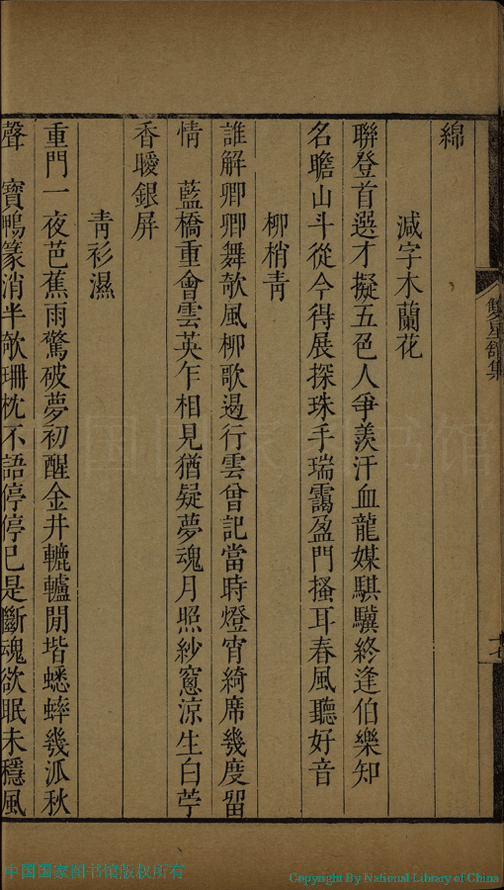 綿
減字木蘭花
聯登首選才擬五色人爭羨汗血龍媒騏驥終逢伯樂知
名瞻山斗從今得展探珠手瑞靄盈門搔耳春風聽好音
柳梢青
誰解卿卿舞欹風柳歌遏行雲曾記當時燈宵綺席幾度留
情　藍橋重會雲英乍相見猶疑夢魂月照紗窻涼生白苧
香曖銀屏
青衫濕
重門一夜芭蕉雨驚破夢初醒金井轆轤閒堦蟋蟀幾泒秋
聲　寶鴨篆消半欹珊枕不語停停已是斷魂欲眠未穩風
中国国家图书馆版权所有
Copyright By National Library of China